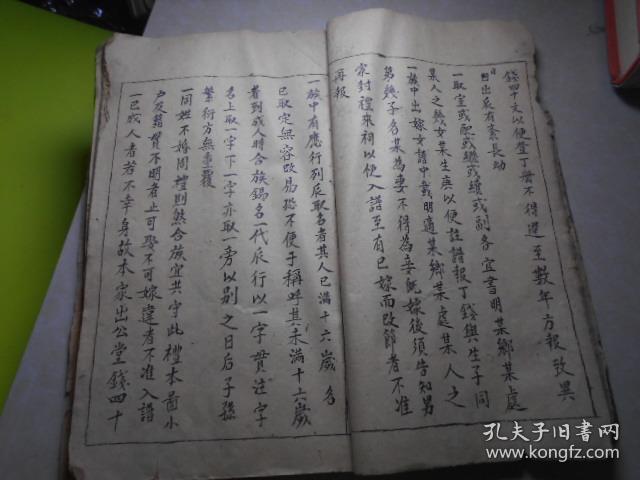 錢四十文以便登丁冊不得遲至數年方報致異
日因出辰有紊長幼
一取室或配或繼或續或副各宜書明某鄉某處
某人之幾女某生庚以便註譜報丁錢與生子同
一族中出嫁女譜中載明適某鄉某處某人之
第幾子名某為妻不得為妾旣嫁後須告知男
家封禮來祠以便入譜至有已嫁而改節者不准
再報
一族中有應行列辰取名者其人已滿十六歲名
已取定無容改易恐不便于稱呼其未滿十六歲
者到成人時合族錫名一代辰行以一字貫注字
名上取一字下一字亦取一旁以別之日后子孫
繁衍方無重覆
一同姓不婚周禮則然合族宜共守此禮本酋小
户及籍貫不明者上可娶不可嫁違者不准入譜
一已成人者若不幸身故本家出公堂錢四十
孔夫子旧書网
www.kongfz.com